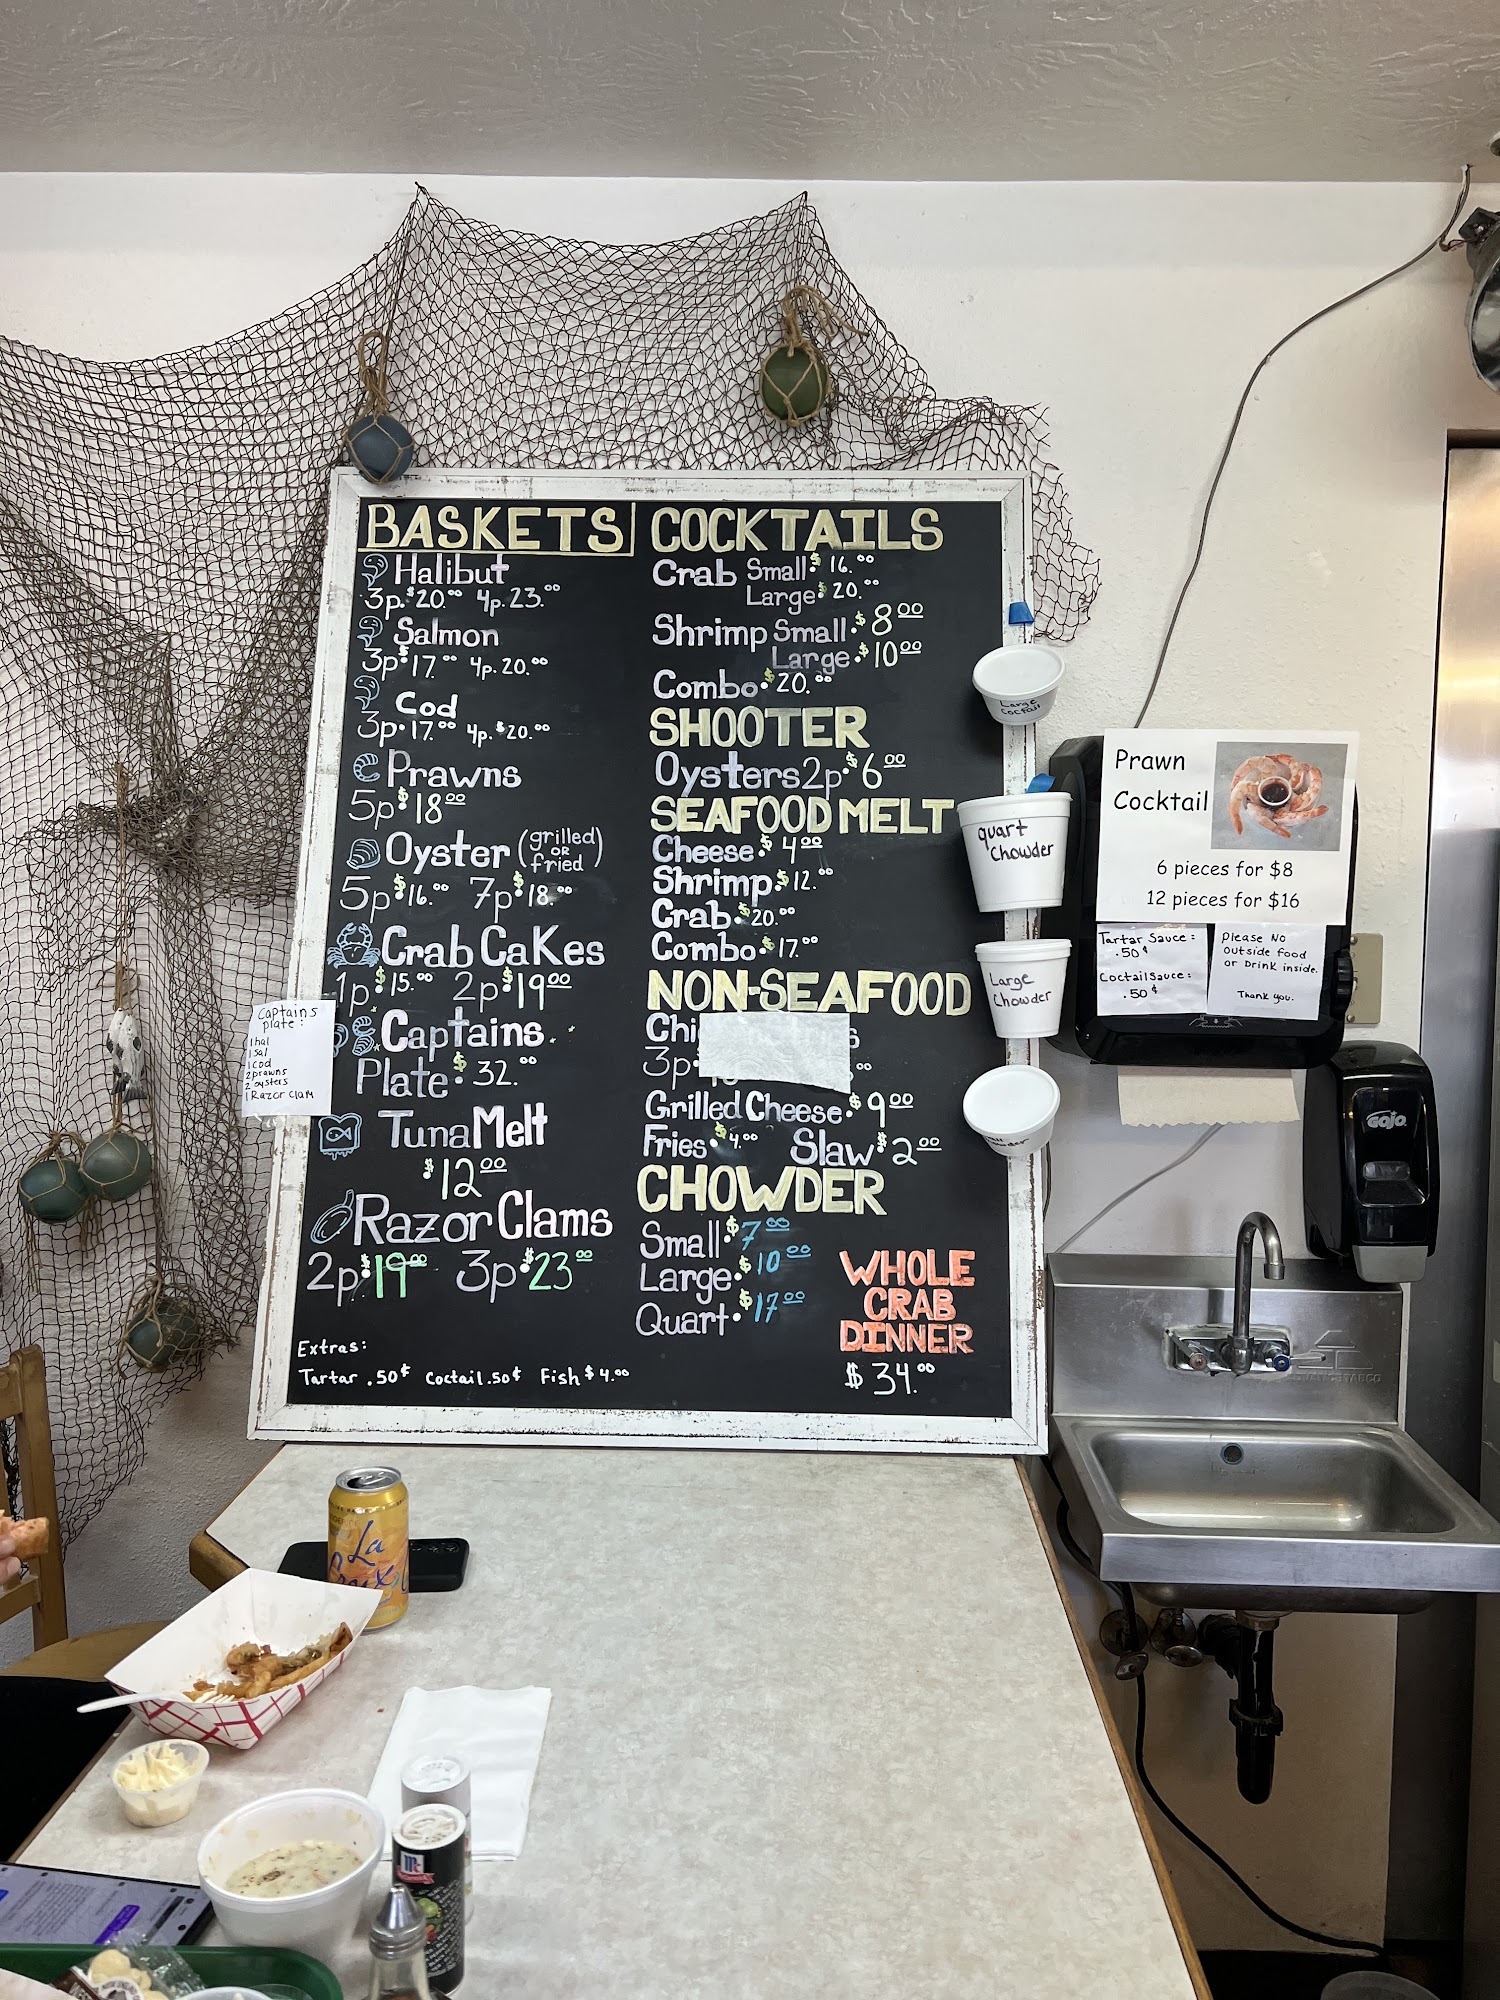 BASKETS
Halibut
3p. $20.00 4p. 23.00
Salmon
3p. $17.00 4p. 20.00
Cod
3p. 17.00 4p. $20.00
Prawns
5p. $18.00
Oyster (grilled OR fried)
5p. $16.00 7p. $18.00
Crab Cakes
1p. $15.00 2p. $19.00
Captains
Plate. $32.00
Tuna Melt
$12.00
Razor Clams
2p. $19.00 3p. $23.00
Extras:
Tartar .50¢ Coctail .50¢ Fish $4.00
COCKTAILS
Crab Small. $16.00
Large. $20.00
Shrimp Small. $8.00
Large. $10.00
Combo. $20.00
SHOOTER
Oysters 2p. $6.00
SEAFOOD MELT
Cheese. $4.00
Shrimp. $12.00
Crab. $20.00
Combo. $17.00
NON-SEAFOOD
3p.
Grilled Cheese. $9.00
Fries. $4.00 Slaw. $2.00
CHOWDER
Small. $7.00
Large. $10.00
Quart. $17.00
WHOLE
CRAB
DINNER
$34.00
Captains
plate:
1 hal
1 sal
1 cod
2 prawns
2 oysters
1 Razor clam
Large
Coctail
quart
Chowder
Large
Chowder
Prawn
Cocktail
6 pieces for $8
12 pieces for $16
Tartar Sauce:
.50¢
Coctail Sauce:
.50¢
Please No
outside food
or Drink inside.
Thank you.
GOJO
La
Croix